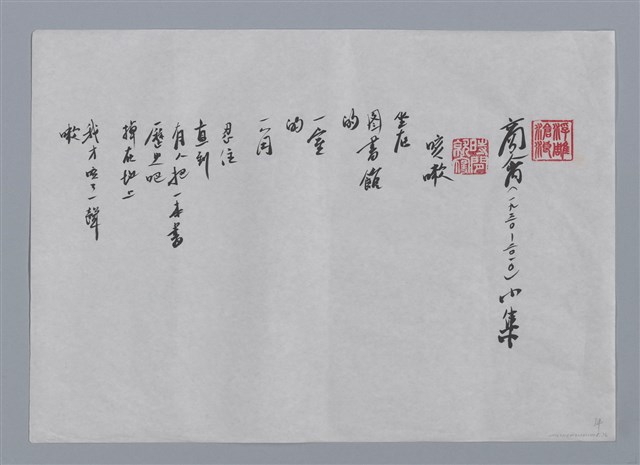 商禽(一九三〇-二〇一〇)小集
咳嗽
坐在
圖書館
的
一室
的
一角
忍住
直到
有人把一本書
歷史吧
掉在地上
我才咳了一聲
嗽